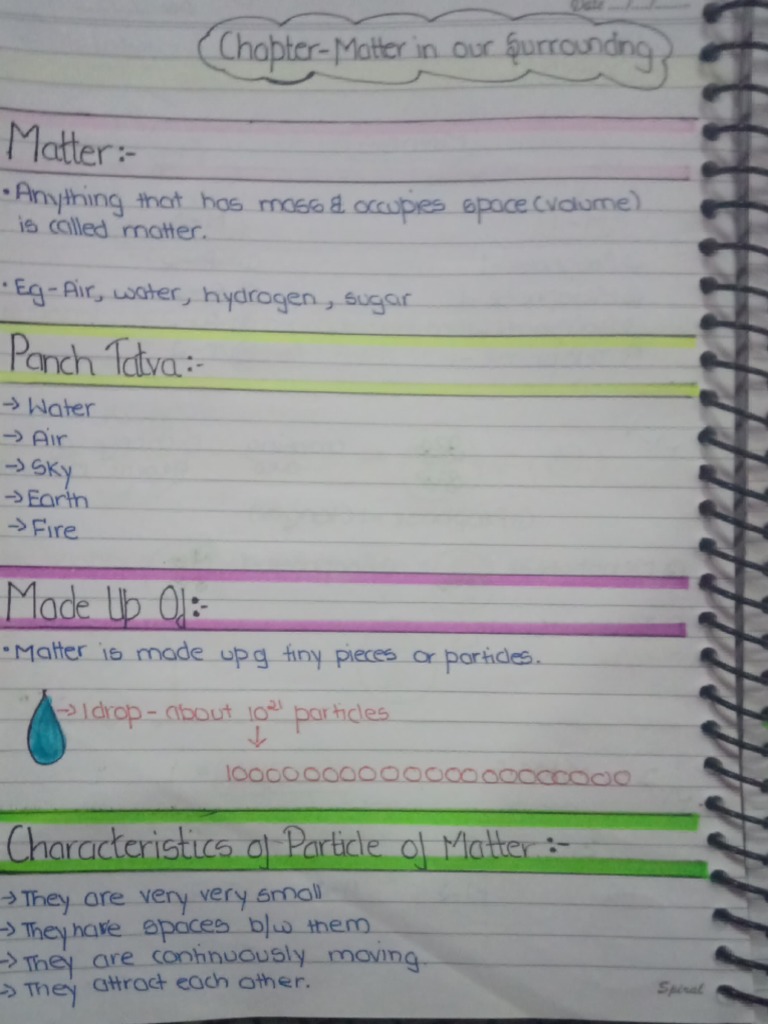 Date / /
Chapter-Matter in our Surrounding
Matter:-
•Anything that has mass & occupies space (volume)
is called matter.
•Eg-Air, water, hydrogen, sugar
Panch Tatva:-
→Water
→Air
→Sky
→Earth
→Fire
Made Up Of:-
•Matter is made up of tiny pieces or particles.
→1drop-about 10²¹ particles
↓
1000000000000000000000
Characteristics of Particle of Matter:-
→They are very very small
→They have spaces b/w them
→They are continuously moving
→They attract each other.
Spiral